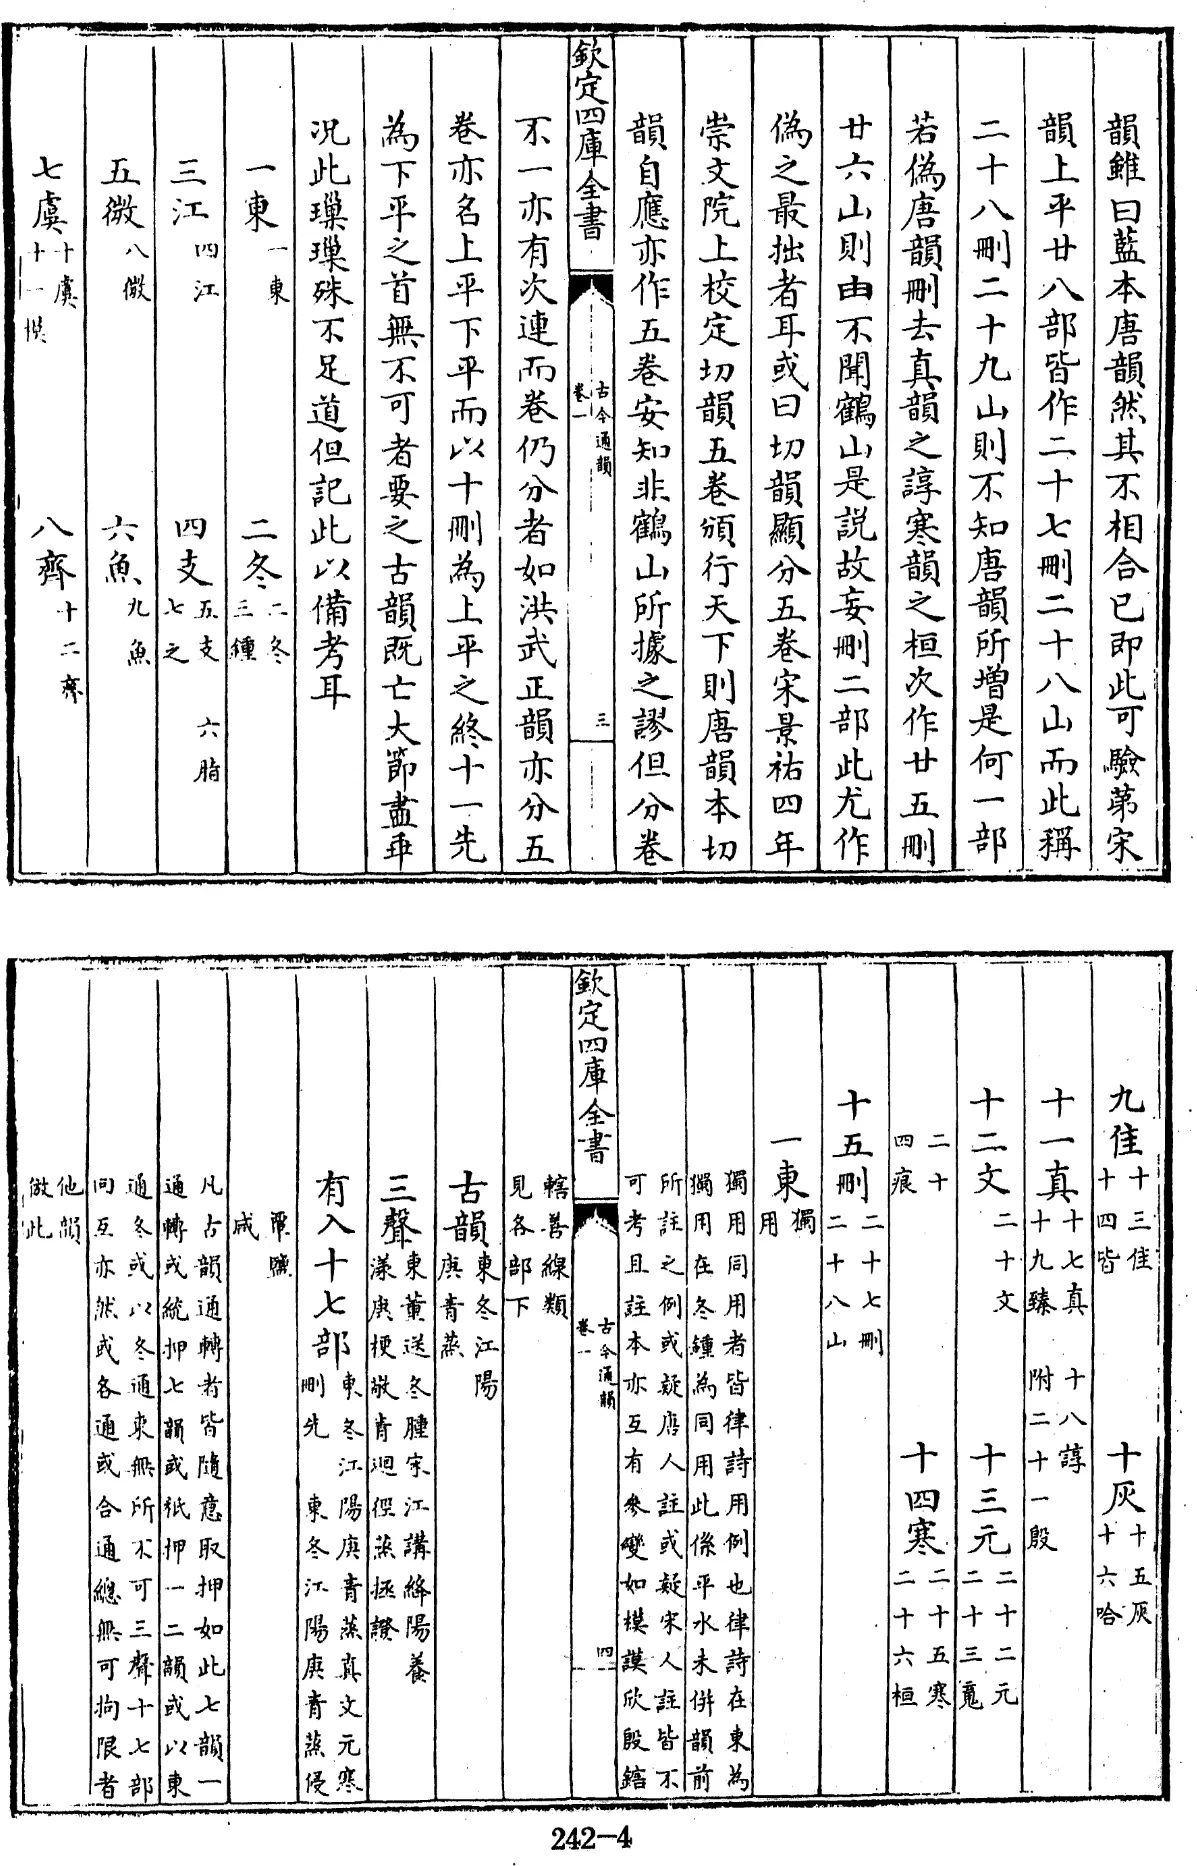 韻雖曰藍本唐韻然其不相合已即此可驗苐宋
韻上平廿八部皆作二十七刪二十八山而此稱
二十八刪二十九山則不知唐韻所增是何一部
若偽唐韻刪去真韻之諄寒韻之桓次作廿五刪
廿六山則由不聞鶴山是説故妄刪二部此尤作
偽之最拙者耳或曰切韻顯分五卷宋景祐四年
崇文院上校定切韻五卷頒行天下則唐韻本切
韻自應亦作五卷安知非鶴山所據之謬但分卷
欽定四庫全書
古今通韻
卷一
三
不一亦有次連而卷仍分者如洪武正韻亦分五
卷亦名上平下平而以十刪為上平之終十一先
為下平之首無不可者要之古韻既亡大節盡乖
况此璅璅殊不足道但記此以備考耳
一東 一東 二冬 二冬 三鍾
三江 四江 四支 五支 六脂 七之
五微 八微 六魚 九魚
七虞 十虞 十一模 八齊 十二齊
九佳 十三佳 十四皆 十灰 十五灰 十六咍
十一真 十七真 十八諄 十九臻 附二十一殷
十二文 二十文 十三元 二十二元 二十三䰟
二十四痕 十四寒 二十五寒 二十六桓
十五刪 二十七刪 二十八山
一東 獨用
獨用同用者皆律詩用例也律詩在東為
獨用在冬鍾為同用此係平水未併韻前
所註之例或疑唐人註或疑宋人註皆不
可考且註本亦互有參變如模謨欣殷鎋
欽定四庫全書
古今通韻
卷一
四
轄善線類
見各部下
古韻 東冬江陽
庚青蒸
三聲 東董送冬腫宋江講絳陽養
漾庚梗敬青迥徑蒸拯證
有入十七部 東冬江陽庚青蒸真文元寒
刪先 東冬江陽庚青蒸侵
覃鹽
咸
凡古韻通轉者皆隨意取押如此七韻一
通轉或統押七韻或秖押一二韻或以東
通冬或以冬通東無所不可三聲十七部
囘互亦然或各通或合通總無可拘限者
他韻
倣此
242-4